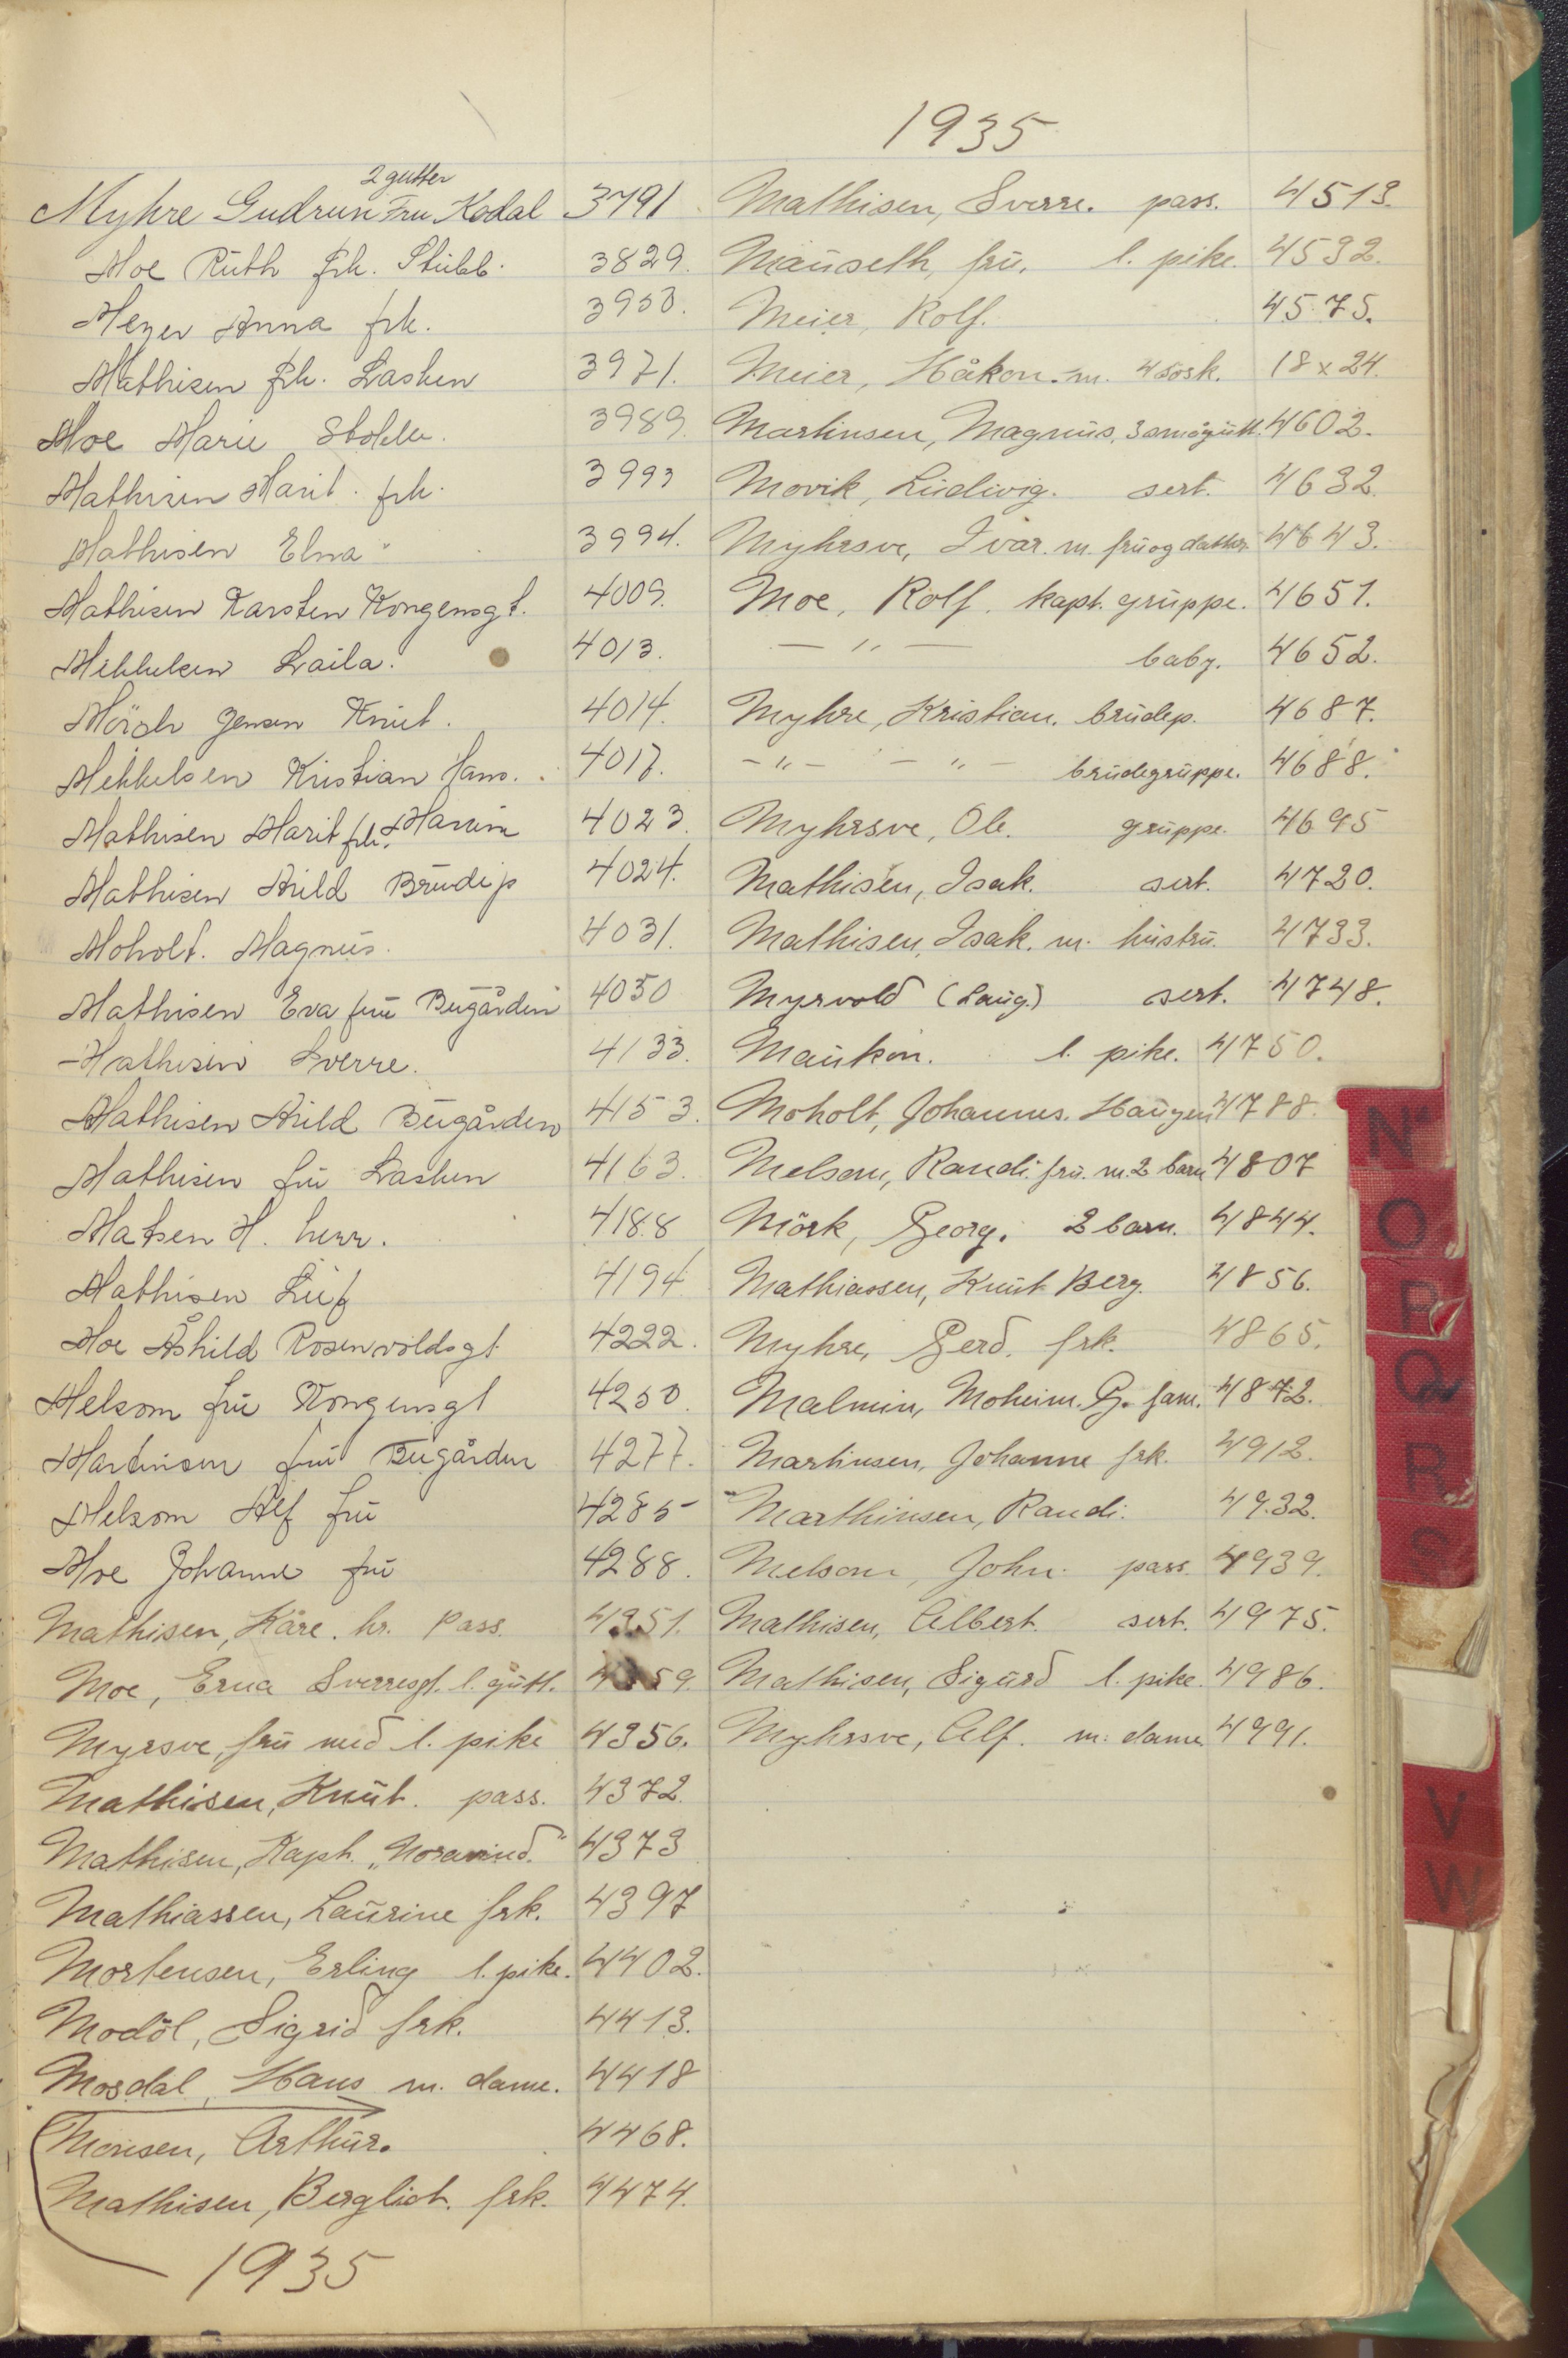 1935
2 gutter
Myhre Gudrun Fru Kodal 3791
Moe Ruth frk. Stubb. 3829.
Meyer Anna frk. 3950.
Mathisen frk. Lasken 3971.
Moe Marie 3989.
Mathisen Marit. frk. 3993
Mathisen Elna " 3994.
Mathisen Karsten Kongensgt. 4009.
Mikkelsen Laila. 4013.
Mörch Jensen Knut. 4014.
Mikkelsen Kristian Hans. 4017.
Mathisen Marit frk. 4023.
Mathisen Arild Brudep 4024.
Moholt. Magnus. 4031.
Mathisen Eva fru Bugården 4050
Mathisen Sverre. 4133.
Mathisen Arild Bugården 4153.
Mathisen fru Lasken 4163.
Matsen H. herr. 4188
Mathisen Leif 4194
Moe Åshild Rosenvoldsgt 4222.
Melsom fru Kongensgt 4250.
Martinsen fru Bugården 4277.
Melsom Alf fru 4285
Moe Johanne fru 4288.
Mathisen, Kåre. hr. Pass. 4351.
Moe, Erna Sverresgt. l. gutt. 59.
Myrsve, fru med l. pike 4356.
Mathisen, Knut. pass. 4372.
Mathisen, Kapt. „Norsvind." 4373
Mathiassen, Laurine frk. 4397
Mortensen, Erling l. pike. 4402.
Modöl, Sigrid frk. 4413.
Mosdal, Hans m. dame. 4418
Monsen, Arthur. 4468.
Mathisen, Bergliot. frk. 4474.
1935
Mathisen, Sverre. pass. 4513.
Mauseth, fru. l. pike. 4532.
Meier, Rolf. 4575.
Meier, Håkon. m. 4 sösk. 18 x 24.
Martinsen, Magnus, 3 smågutt. 4602.
Movik, Ludivig. sert. 4632.
Myhrsve, Ivar. m. fru og datter. 4643.
Moe, Rolf. kapt. gruppe. 4651.
— " — baby. 4652.
Myhre, Kristian. brudep. 4687.
- " - - " - brudegruppe. 4688.
Myhrsve, Ole. gruppe. 4695
Mathisen, Isak. sert. 4720.
Mathisen, Isak. m. hustru. 4733.
Myrvold (Laug.) sert. 4748.
Maukon. l. pike. 4750.
Moholt, Johannes. Haugen 4788.
Melsom, Randi. fru. m. 2 barn 4807
Mörk, Georg. 2 barn. 4844.
Mathiassen, Knut Berg. 4856.
Myhre, Gerd. frk. 4865.
Malmin, Moheim. G. fam. 4872.
Martinsen, Johanne frk. 4912.
Marthinsen, Randi. 4932.
Melsom, John. pass. 4939.
Mathisen, Albert. sert. 4975.
Mathisen, Sigurd l. pike. 4986.
Myhrsve, Alf. m. dame. 4991.
N
O
P
Q
R
S
V
W